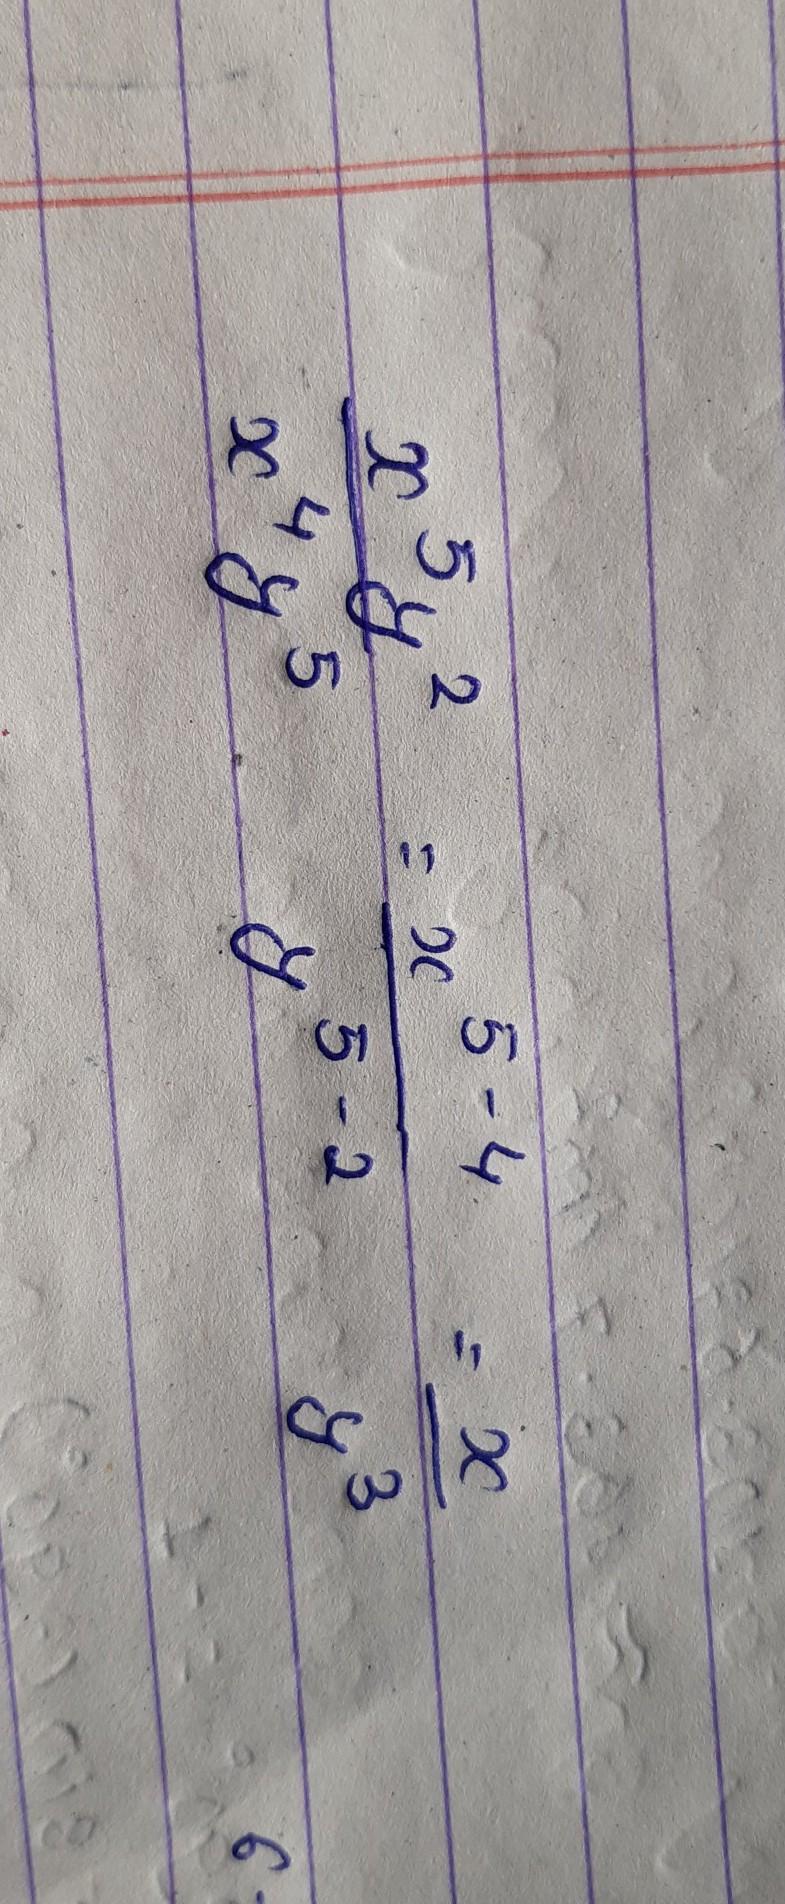 x⁵y²/x⁴y⁵ = x⁵⁻⁴/y⁵⁻² = x/y³
6